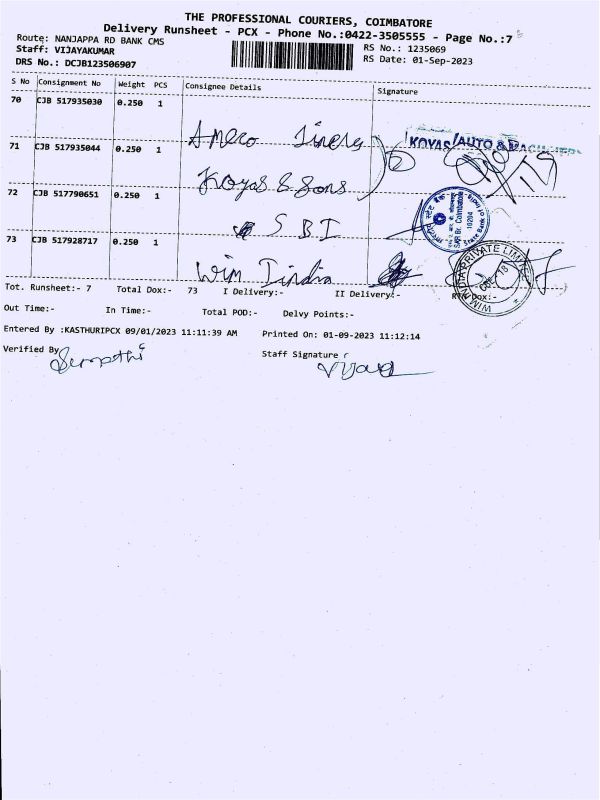 THE PROFESSIONAL COURIERS, COIMBATORE
Delivery Runsheet - PCX - Phone No.:0422-3505555 - Page No.:7
Route: NANJAPPA RD BANK CMS
RS No.: 1235069
Staff: VIJAYAKUMAR
RS Date: 01-Sep-2023
DRS No.: DCJB123506907
S No Consignment No Weight PCS Consignee Details Signature
70 CJB 517935030 0.250 1
KOYAS AUTO &
71 CJB 517935044 0.250 1
Koyas & Sons
72 CJB 517790651 0.250 1
SBI
SKR Br. Coimbatore
10204
State Bank
73 CJB 517928717 0.250 1
Wim India
WIM INDIA PRIVATE LIMITED
Tot. Runsheet:- 7 Total Dox:- 73 I Delivery:- II Delivery:- Dox:-
Out Time:- In Time:- Total POD:- Delvy Points:-
Entered By :KASTHURIPCX 09/01/2023 11:11:39 AM Printed On: 01-09-2023 11:12:14
Verified By
Staff Signature